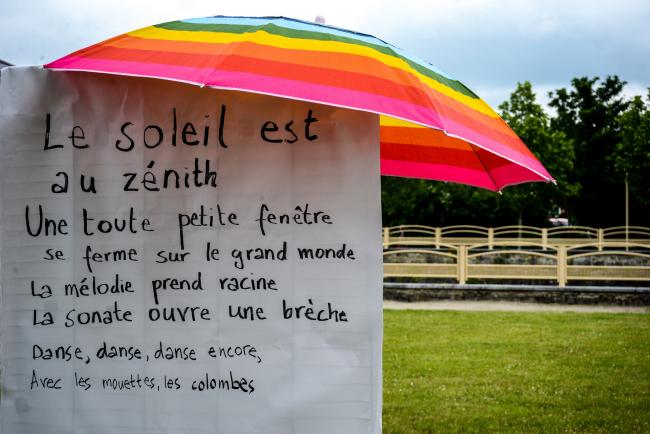 Le soleil est
au zénith
Une toute petite fenêtre
se ferme sur le grand monde
La mélodie prend racine
La sonate ouvre une brèche
Danse, danse, danse encore,
Avec les mouettes, les colombes